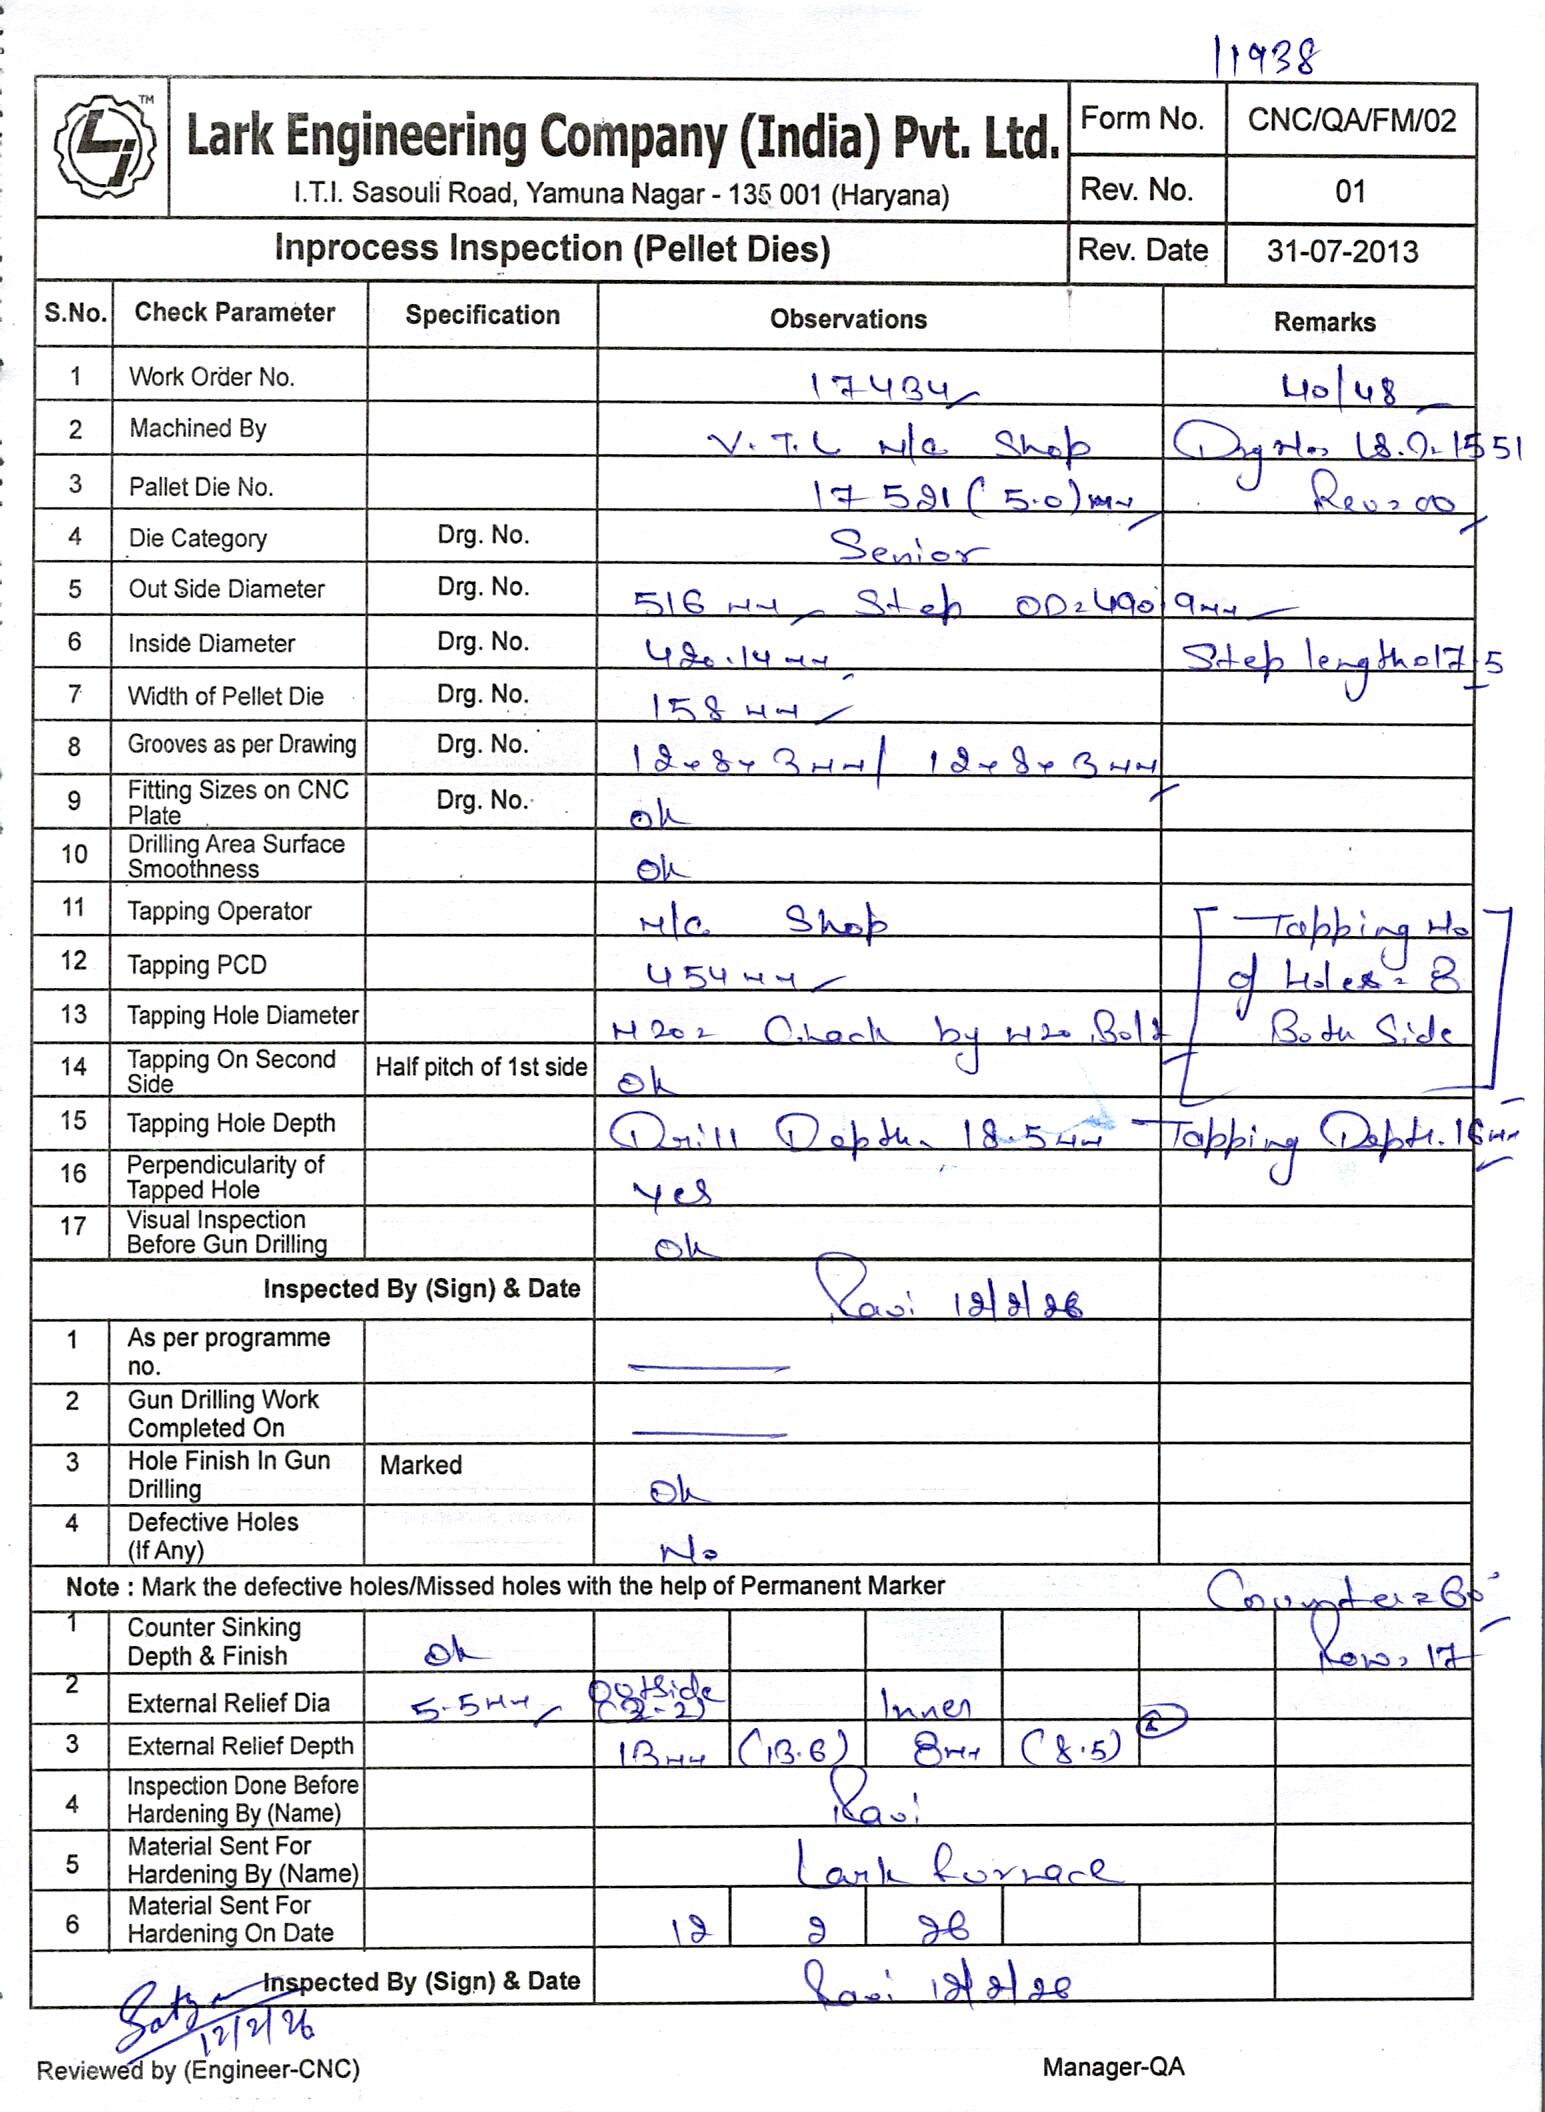 11938
TM
Lark Engineering Company (India) Pvt. Ltd.
I.T.I. Sasouli Road, Yamuna Nagar - 135 001 (Haryana)
Form No. CNC/QA/FM/02
Rev. No. 01
Inprocess Inspection (Pellet Dies) Rev. Date 31-07-2013
S.No. Check Parameter Specification Observations Remarks
1 Work Order No. 17434 40/48
2 Machined By V.T.L M/c Shop Drg No. 1551
3 Pallet Die No. 17521 (5.0)mm Rev=00
4 Die Category Drg. No. Senior
5 Out Side Diameter Drg. No. 516 mm Step OD=490.9mm
6 Inside Diameter Drg. No. 420.14mm Step length=17.5
7 Width of Pellet Die Drg. No. 158 mm
8 Grooves as per Drawing Drg. No. 12x8x3mm/ 12x8x3mm
9 Fitting Sizes on CNC Plate Drg. No. ok
10 Drilling Area Surface Smoothness ok
11 Tapping Operator M/c Shop Tapping No
12 Tapping PCD 454mm of Holes=8
13 Tapping Hole Diameter M20= Check by M20 Bolt Both Side
14 Tapping On Second Side Half pitch of 1st side ok
15 Tapping Hole Depth Drill Depth. 18.5mm Tapping Depth.16mm
16 Perpendicularity of Tapped Hole yes
17 Visual Inspection Before Gun Drilling ok
Inspected By (Sign) & Date Ravi 12/2/26
1 As per programme no.
2 Gun Drilling Work Completed On
3 Hole Finish In Gun Drilling Marked ok
4 Defective Holes (If Any) No
Note : Mark the defective holes/Missed holes with the help of Permanent Marker Counter=60°
1 Counter Sinking Depth & Finish ok Row=17
2 External Relief Dia 5.5mm Outside (2-2) Inner
3 External Relief Depth 13mm (13.6) 8mm (8.5)
4 Inspection Done Before Hardening By (Name) Ravi
5 Material Sent For Hardening By (Name) Lark furnace
6 Material Sent For Hardening On Date 12 2 26
Inspected By (Sign) & Date Ravi 12/2/26
Satya
12/2/26
Reviewed by (Engineer-CNC) Manager-QA